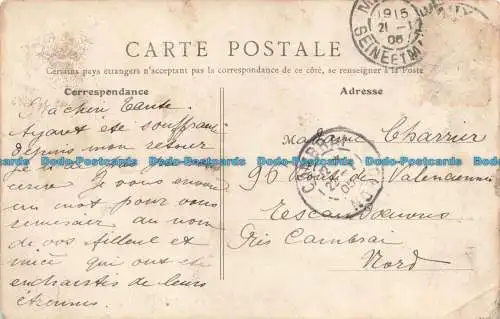 CARTE POSTALE
Certains pays étrangers n'acceptant pas la correspondance de ce côté, se renseigner à la Poste
Correspondance
Adresse
Ma chère Tante
Ayant été souffrant
depuis mon retour
je
Je vous envoie
un mot pour vous
remercier au nom
de vos filleul et
nièce qui ont été
enchantés de leurs
étrennes
Madame Charrier
90 Route de Valenciennes
Escaudoeuvres
Près Cambrai
Nord
1915
21 - 1
05
SEINE ET M
CAMBRAI
22 -
05
Dodo-Postcards Dodo-Postcards Dodo-Postcards Dodo-Postcards